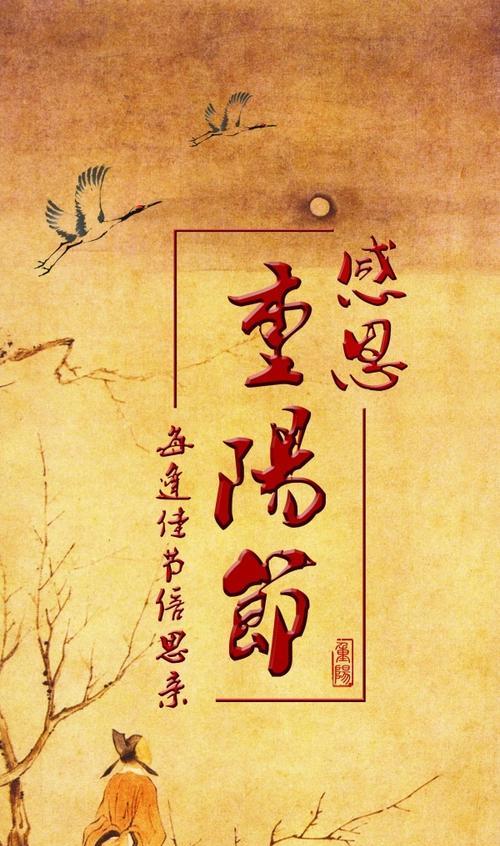 感恩
重陽節
每逢佳节倍思亲
重陽